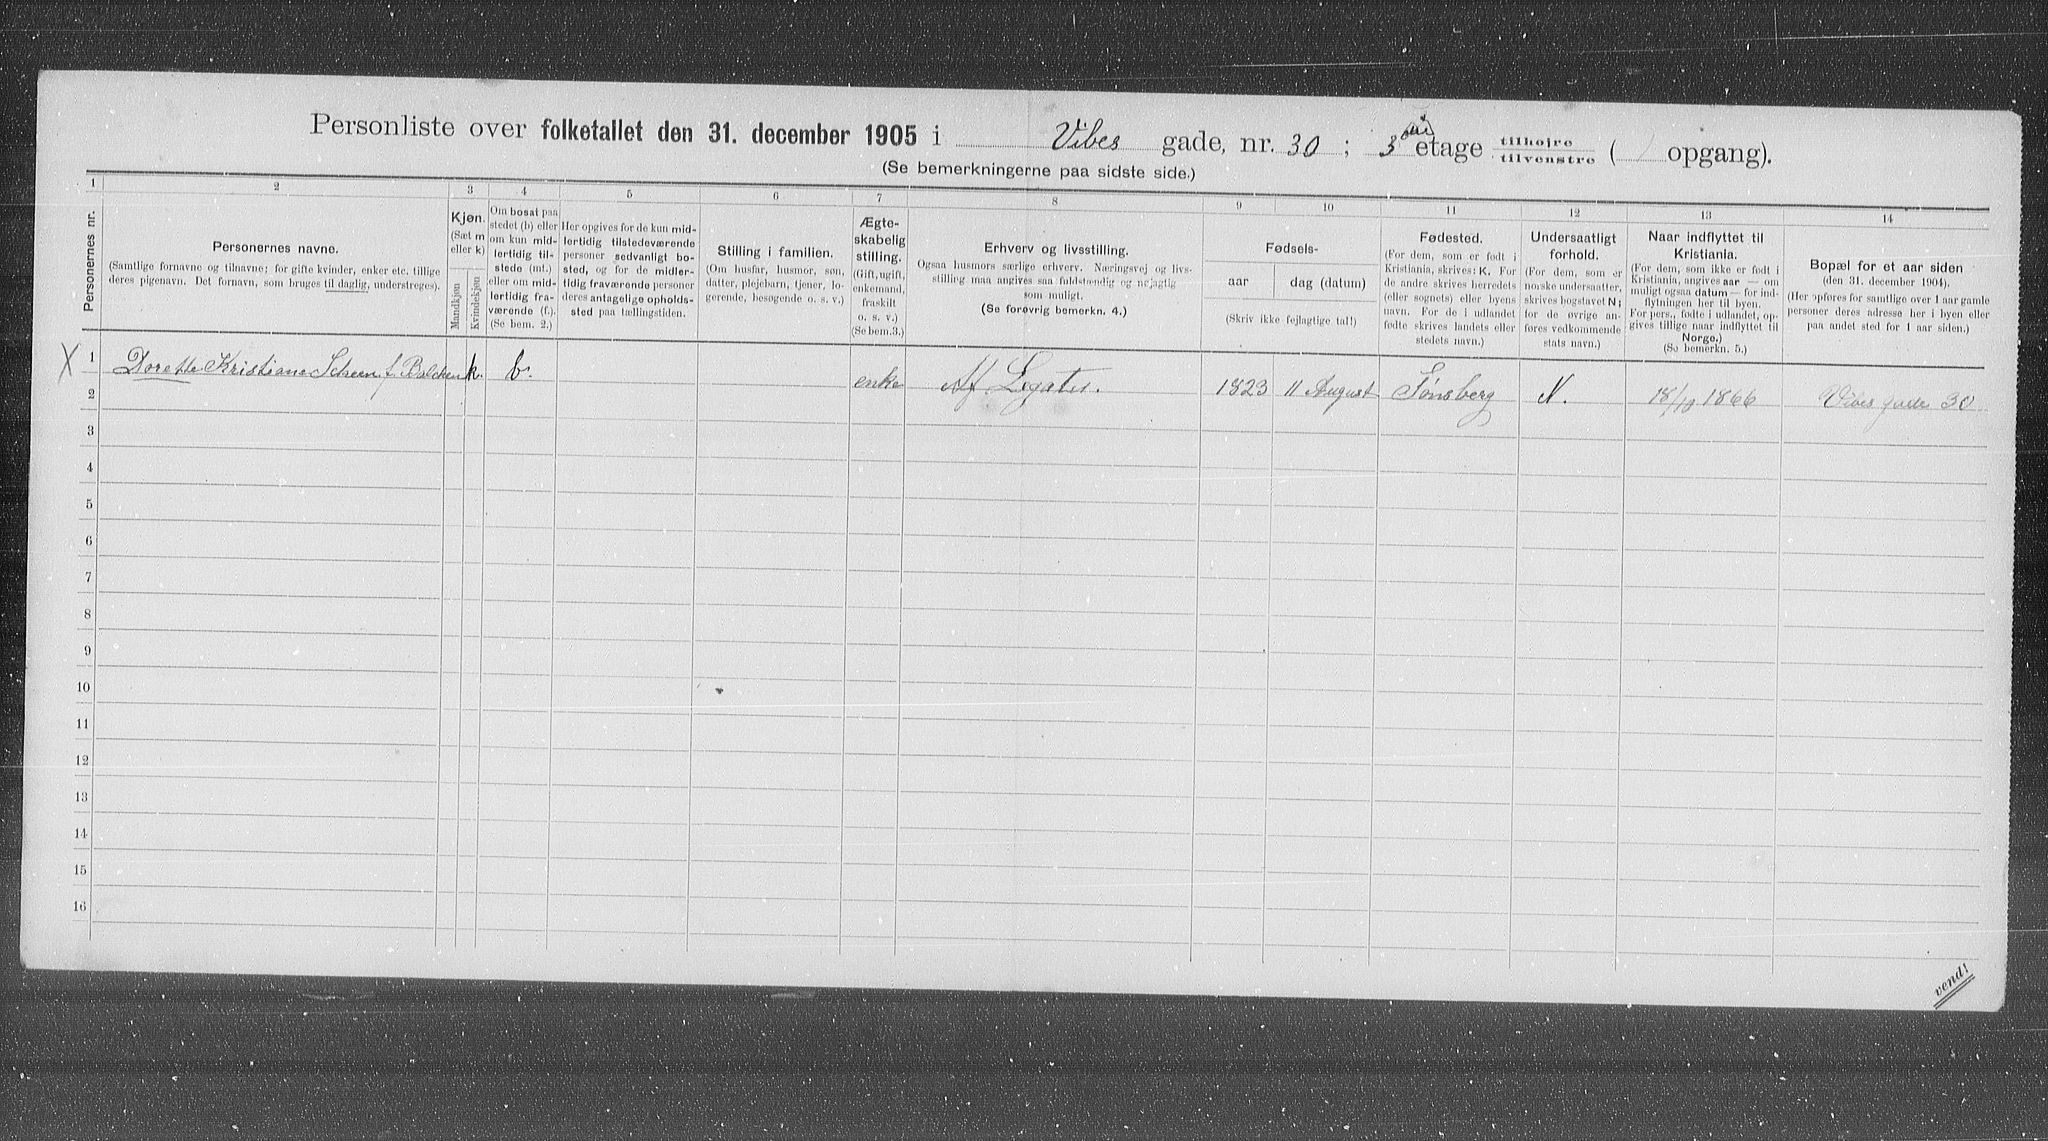 Personliste over folketallet den 31. december 1905 i Vibes gade, nr. 30 ; 3 etage tilhøjre tilvenstre ( opgang).
(Se bemerkningerne paa sidste side.)
1 2 3 4 5 6 7 8 9 10 11 12 13 14
Personernes nr.
Personernes navne.
(Samtlige fornavne og tilnavne; for gifte kvinder, enker etc. tillige
deres pigenavn. Det fornavn, som bruges til daglig, understreges).
Kjøn.
(Sæt m
eller k)
Mandkjøn
Kvindekjøn
Om bosat paa
stedet (b) eller
om kun mid-
lertidig til-
stede (mt.)
eller om mid-
lertidig fra-
værende (f.).
(Se bem. 2.)
Her opgives for de kun mid-
lertidig tilstedeværende
personer sedvanligt bo-
sted, og for de midler-
tidig fraværende personer
deres antagelige opholds-
sted paa tællingstiden.
Stilling i familien.
(Om husfar, husmor, søn,
datter, plejebarn, tjener, lo-
gerende, besøgende o. s. v.)
Ægte-
skabelig
stilling.
(Gift, ugift,
enkemand,
fraskilt
o. s. v.)
(Se bem. 3.)
Erhverv og livsstilling.
Ogsaa husmors særlige erhverv. Næringsvej og livs-
stilling maa angives saa fuldstændig og nøjagtig
som muligt.
(Se forøvrig bemerkn. 4.)
Fødsels-
aar
dag (datum)
(Skriv ikke fejlagtige tal!)
Fødested.
(For dem, som er født i
Kristiania, skrives: K. For
de andre skrives herredets
(eller sognets) eller byens
navn. For de i udlandet
fødte skrives landets eller
stedets navn.)
Undersaatligt
forhold.
(For dem, som er
norske undersaatter,
skrives bogstavet N;
for de øvrige an-
føres vedkommende
stats navn.)
Naar indflyttet til
Kristiania.
(For dem, som ikke er født i
Kristiania, angives aar — om
muligt ogsaa datum — for ind-
flytningen her til byen.
For pers., fødte i udlandet, op-
gives tillige naar indflyttet til
Norge.)
(Se bemerkn. 5.)
Bopæl for et aar siden
(den 31. december 1904).
(Her opføres for samtlige over 1 aar gamle
personer deres adresse her i byen eller
paa andet sted for 1 aar siden.)
X 1 Dorette Kristiane Scheen f. Balchen k. b. enke Af Legater. 1823 11 August Tønsberg N. 18/10 1866 Vibes gade 30
2
3
4
5
6
7
8
9
10
11
12
13
14
15
16
vend!